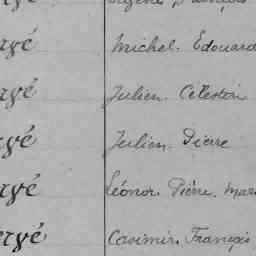 rgé Michel. Édouard
rgé Julien. Célestin
rgé Julien. Pierre
rgé Léonor. Pierre. Mar
ergé Casimir. François